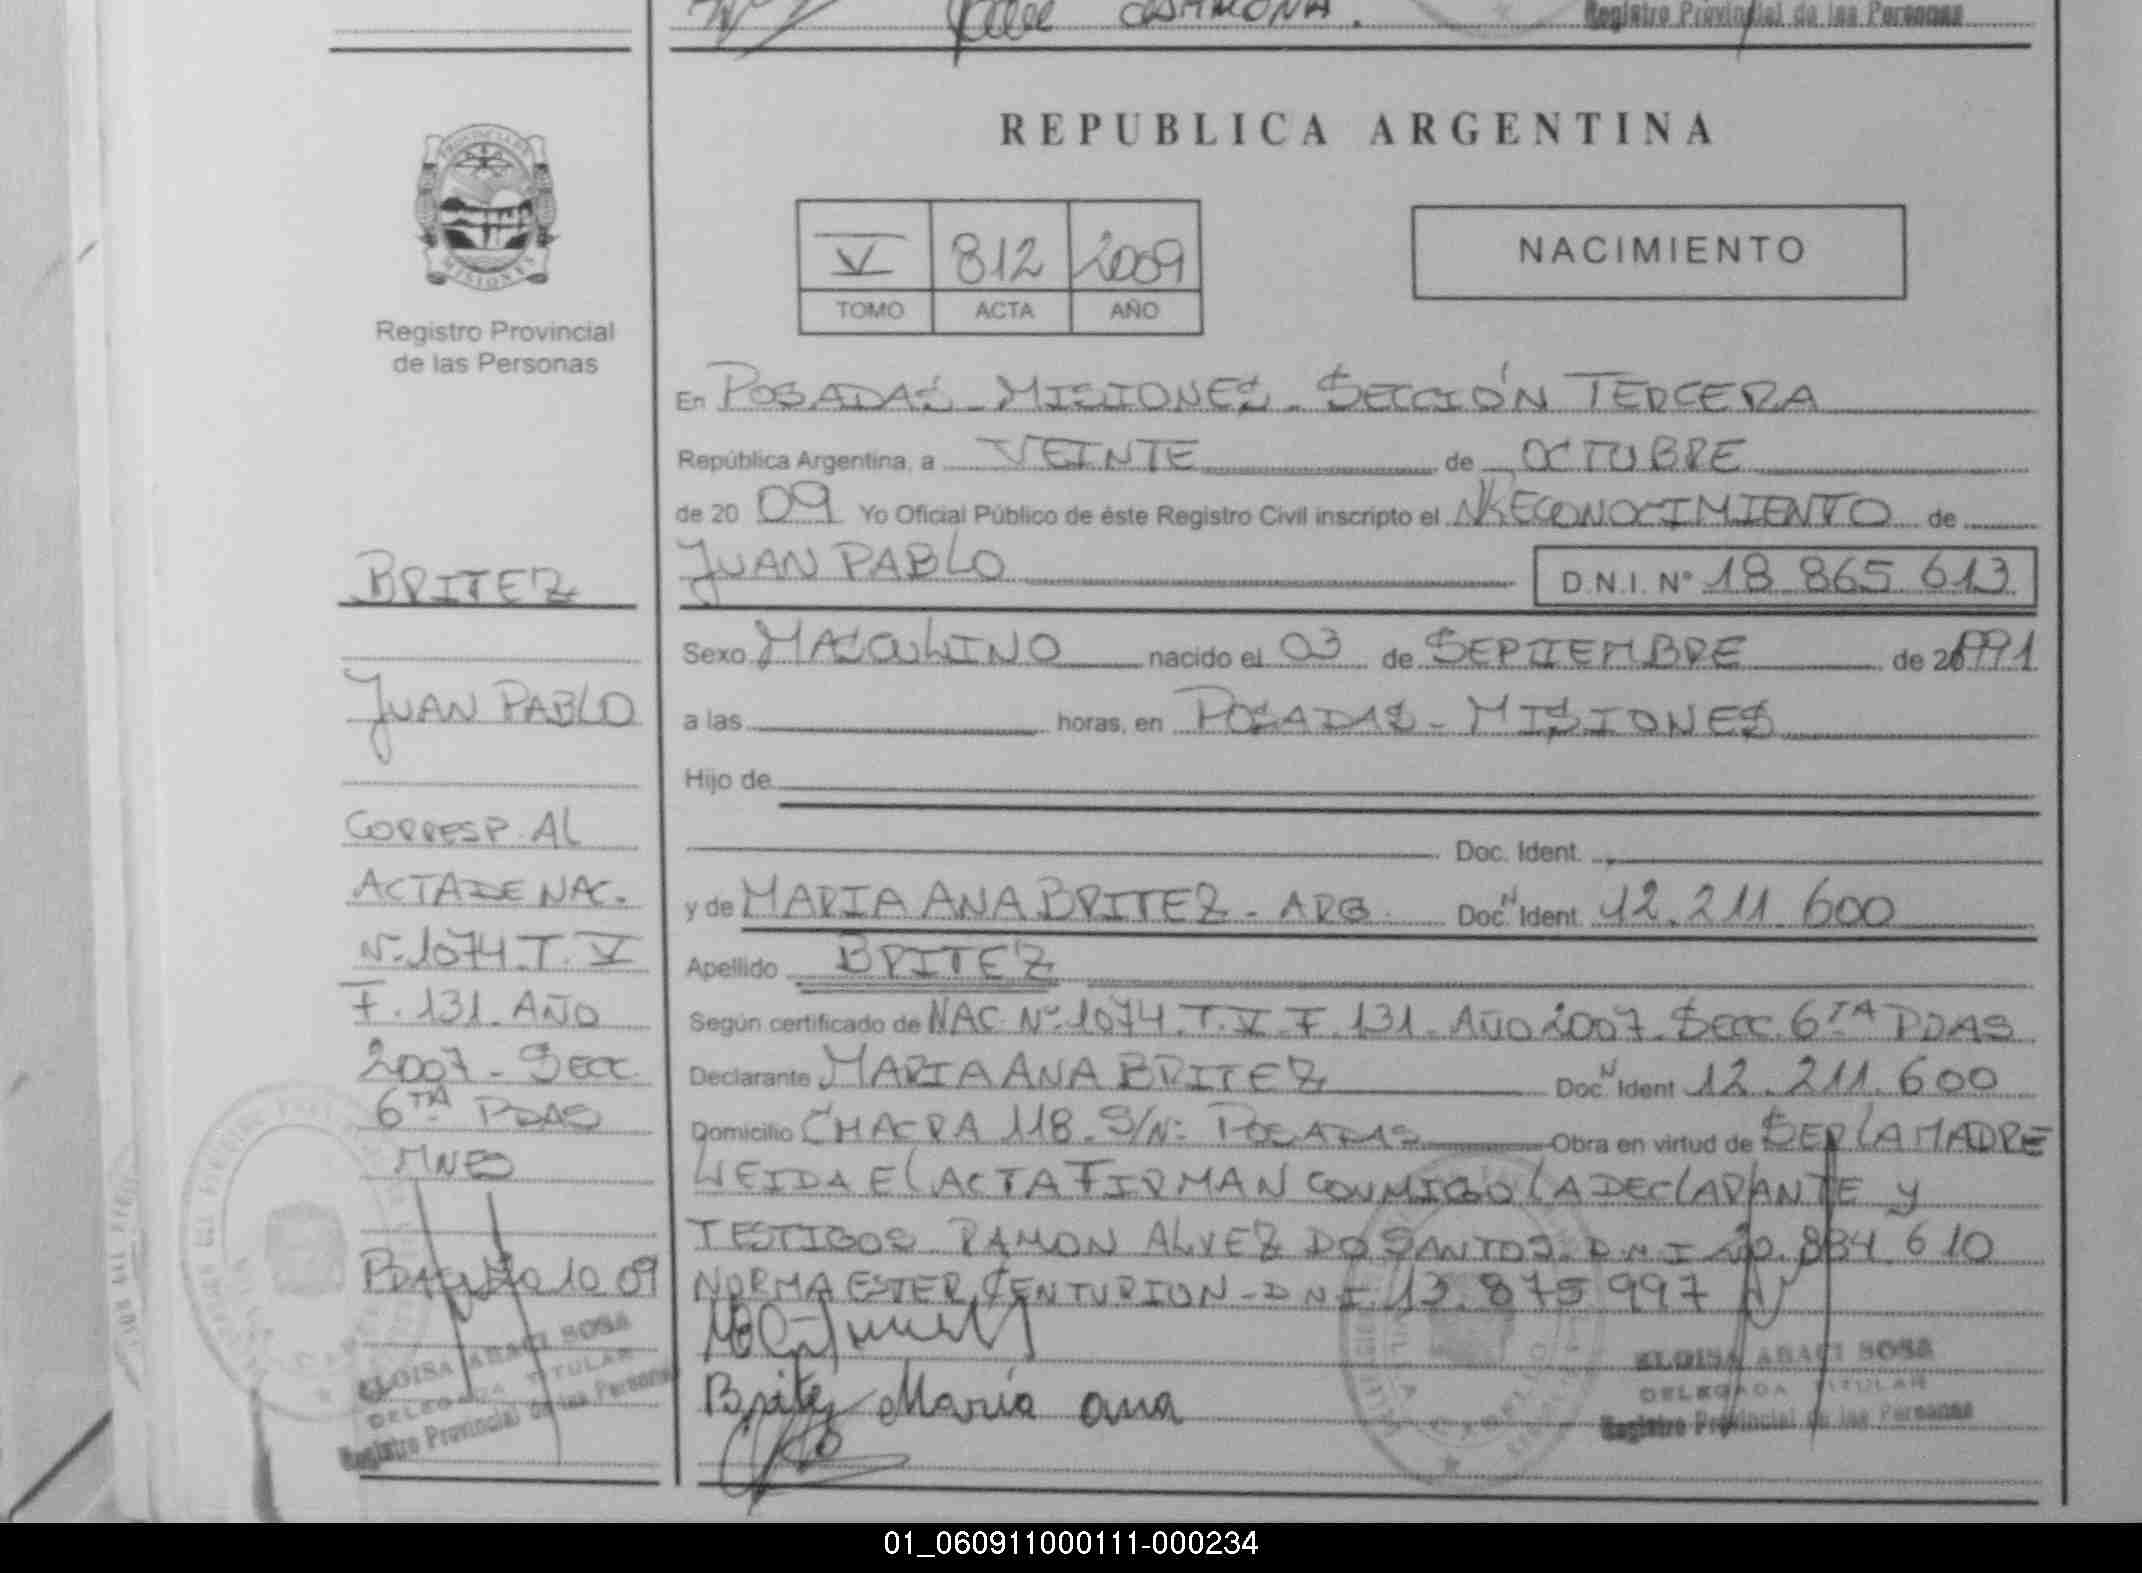 CARMONA.
Registro Provincial de las Personas
PROVINCIA DE
MISIONES
Registro Provincial
de las Personas
REPUBLICA ARGENTINA
V 812 2009
TOMO ACTA AÑO
NACIMIENTO
En POSADAS - MISIONES - SECCIÓN TERCERA
República Argentina, a VEINTE de OCTUBRE
de 20 09 Yo Oficial Público de éste Registro Civil inscripto el RECONOCIMIENTO de
JUAN PABLO D.N.I. N° 18 865 613
Sexo MASCULINO nacido el 03 de SEPTIEMBRE de 1991
a las horas, en POSADAS - MISIONES
Hijo de
Doc. Ident.
y de MARIA ANA BRITEZ - ARG. Doc. N Ident. 12.211 600
Apellido BRITEZ
Según certificado de NAC. Nº 1074. T. V. F. 131. AÑO 2007. SECC. 6TA PDAS
Declarante MARIA ANA BRITEZ Doc. N Ident 12.211.600
Domicilio CHACRA 118. S/Nº POSADAS Obra en virtud de SER LA MADRE
LEIDA EL ACTA FIRMAN CONMIGO LA DECLARANTE Y
TESTIGOS RAMON ALVEZ DO SANTOS. D.N.I 20.884 610
NORMA ESTER CENTURION - D N I. 13.875 997
Britez Maria ana
ELOISA ABACI SOSA
DELEGADA TITULAR
Registro Provincial de las Personas
BRITEZ
JUAN PABLO
CORRESP. AL
ACTA DE NAC.
Nº 1074. T. V
F. 131. AÑO
2007 - SECC.
6TA PDAS
MNES
PDAS 20 10 09
ELOISA ABACI SOSA
DELEGADA TITULAR
Registro Provincial de las Personas
01_060911000111-000234